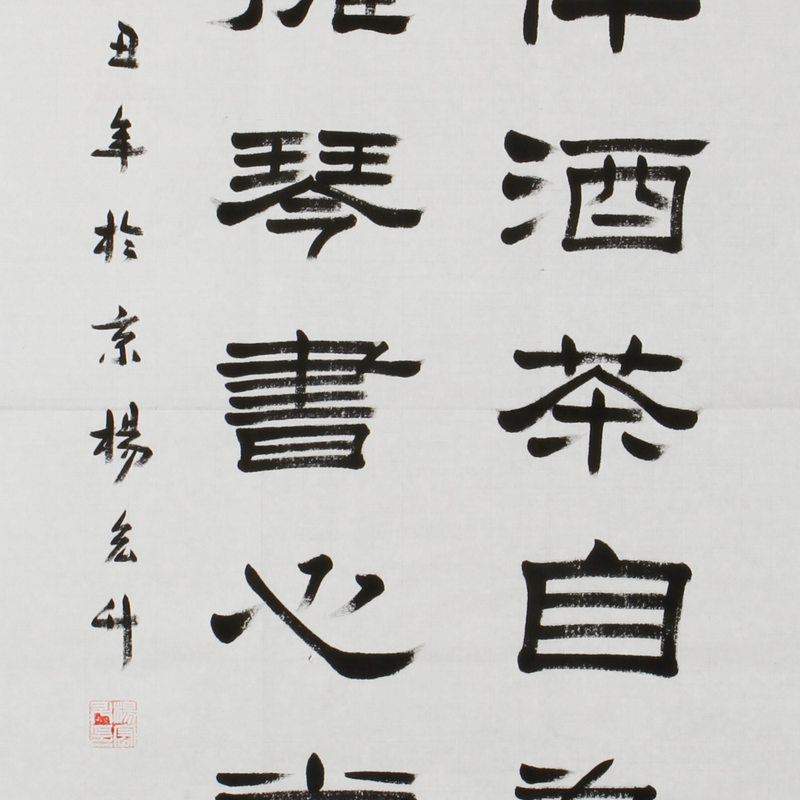 酒茶自
琴書心
丑年於京楊宏升